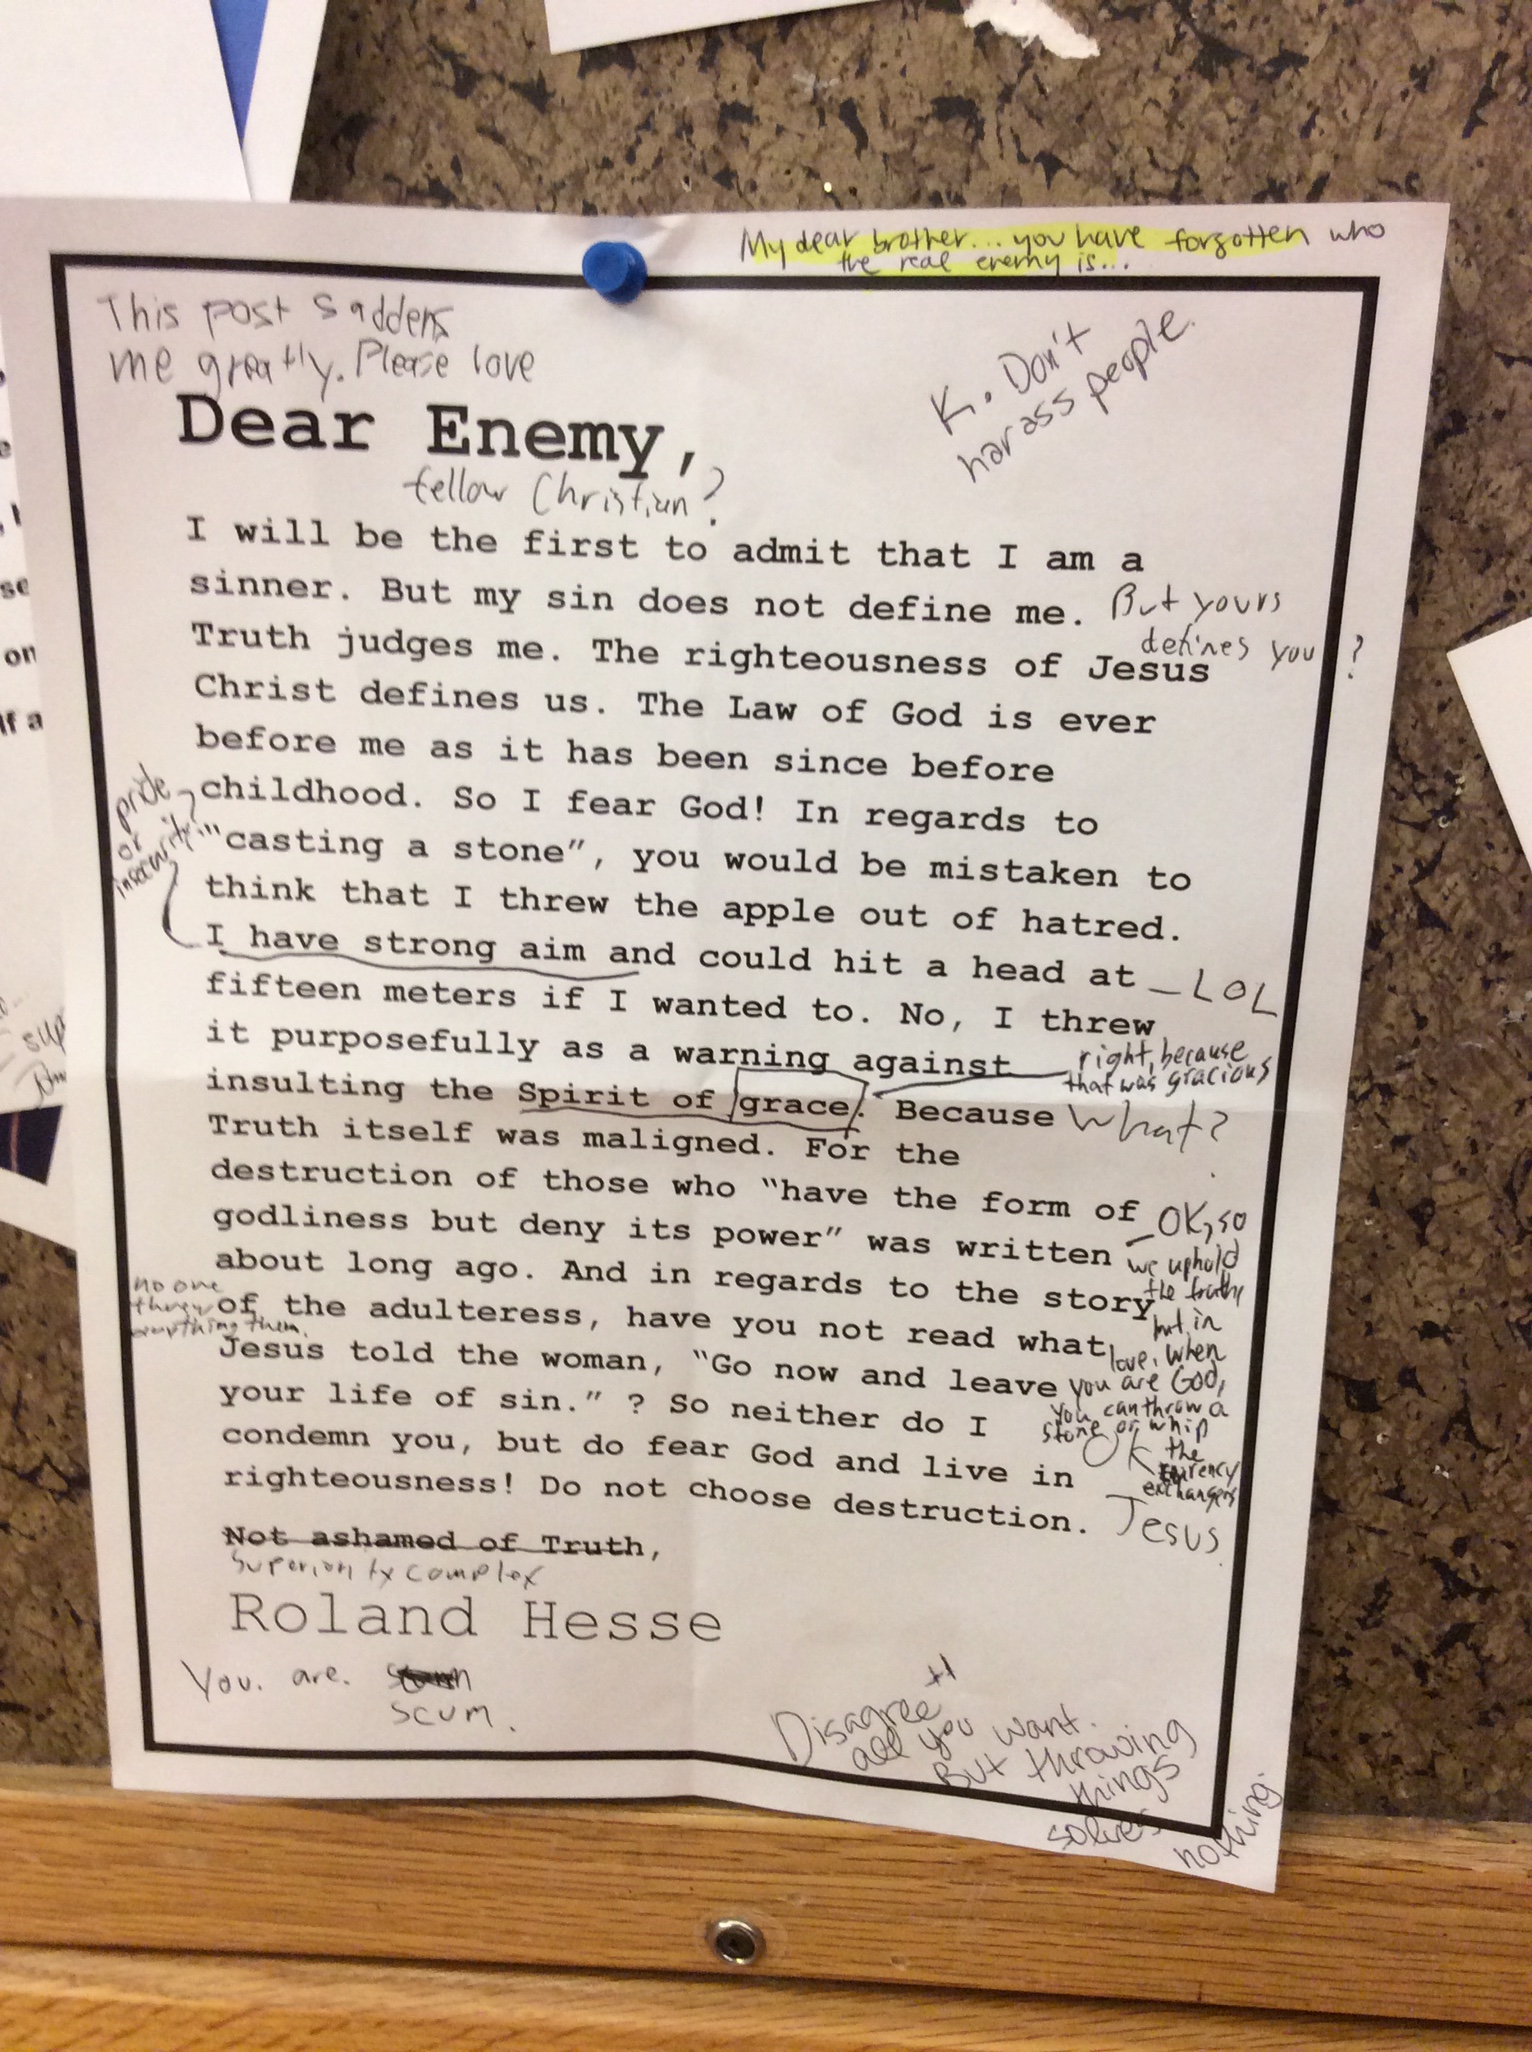 My dear brother... you have forgotten who
the real enemy is...
This post saddens
me greatly. Please love
K. Don't
harass people.
Dear Enemy,
fellow Christian?
I will be the first to admit that I am a
sinner. But my sin does not define me.
But yours
defines you?
Truth judges me. The righteousness of Jesus
Christ defines us. The Law of God is ever
before me as it has been since before
childhood. So I fear God! In regards to
pride
or
insecurity?
"casting a stone", you would be mistaken to
think that I threw the apple out of hatred.
I have strong aim and could hit a head at
LOL
fifteen meters if I wanted to. No, I threw
it purposefully as a warning against
right, because
that was gracious
insulting the Spirit of grace. Because
What?
Truth itself was maligned. For the
destruction of those who "have the form of
godliness but deny its power" was written
about long ago. And in regards to the story
of the adulteress, have you not read what
Jesus told the woman, "Go now and leave
your life of sin." ? So neither do I
condemn you, but do fear God and live in
righteousness! Do not choose destruction.
OK, so
we uphold
the truth,
but in
love. When
you are God,
you can throw a
stone or whip
the
currency
exchangers
OK
Jesus.
no one
threw
anything them.
Not ashamed of Truth,
superiority complex
Roland Hesse
You. are.
scum.
Disagree +1
all you want.
But throwing
things
solves
nothing.
se
on
If a